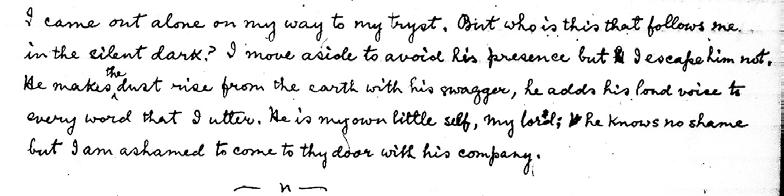 I came out alone on my way to my tryst. But who is this that follows me
in the silent dark? I move aside to avoid his presence but I escape him not.
He makes the dust rise from the earth with his swagger, he adds his loud voice to
every word that I utter. He is my own little self, my lord; he knows no shame
but I am ashamed to come to thy door with his company.